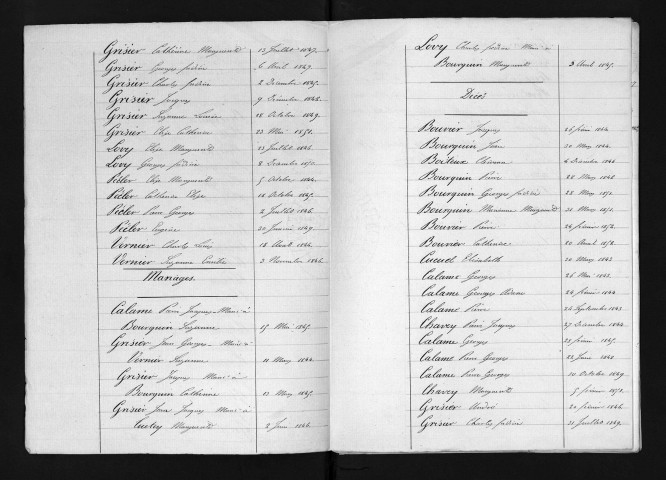 Grisier Catherine Marguerite 13 Juillet 1847.
Grisier Georges frédéric 6 Avril 1849.
Grisier Charles frédéric 2 Décembre 1845.
Grisier Jacques 9 Décembre 1846.
Grisier Suzanne Louise 18 Octobre 1849.
Grisier Elise Catherine 23 Mai 1851.
Lovy Elise Marguerite 13 Juillet 1846.
Lovy Georges frédéric 8 Décembre 1850.
Piéler Elise Marguerite 5 Octobre 1844.
Piéler Catherine Elise 16 Octobre 1845.
Piéler Pierre Georges 2 Juillet 1846.
Piéler Eugénie 20 Janvier 1849.
Vernier Charles Louis 18 Août 1844.
Vernier Suzanne 3 Novembre 1846.
Mariages.
Calame Pierre Jacques Marié à
Bourquin Suzanne 15 Mai 1845.
Grisier Jean Georges Marié à
Vernier Suzanne 11 Mars 1844.
Grisier Jacques Marié à
Bourquin Catherine 13 Mars 1845.
Grisier Jean Jacques Marié à
Cueley Marguerite 2 Juin 1846.
Lovy Charles frédéric Marié à
Bourquin Marguerite 3 Avril 1845.
Décès
Bouvier Jacques 26 février 1844.
Bourquin Jean 20 Mars 1844.
Boiteux 6 Décembre 1844.
Bourquin Pierre 22 Mars 1848.
Bourquin Georges frédéric 28 Mars 1851.
Bourquin Marianne Marguerite 31 Mars 1851.
Bouvier Pierre 26 février 1852.
Bouvier Catherine 20 Août 1852.
Cucuel Elisabeth 20 Mars 1843.
Calame Georges 26 Mai 1843.
Calame Georges 24 février 1844.
Calame Pierre 24 Septembre 1843.
Chavey Pierre Jacques 27 Décembre 1844.
Calame Georges 25 février 1845.
Calame Pierre Georges 22 Juin 1848.
Calame Pierre Georges 10 Octobre 1849.
Chavey Marguerite 5 février 1851.
Grisier André 20 février 1846.
Grisier Charles frédéric 31 Juillet 1849.